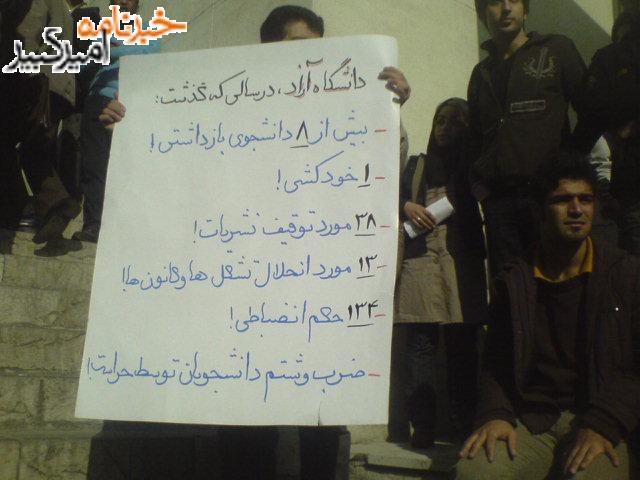 خبرنامه
امیرکبیر
دانشگاه آزاد، در سالی که گذشت:
- بیش از ۸ دانشجوی بازداشتی!
- ۱ خودکشی!
- ۳۸ مورد توقیف نشریات!
- ۱۳ مورد انحلال تشکل ها و کانون ها!
- ۱۳۴ حکم انضباطی!
- ضرب و شتم دانشجویان توسط حراست!